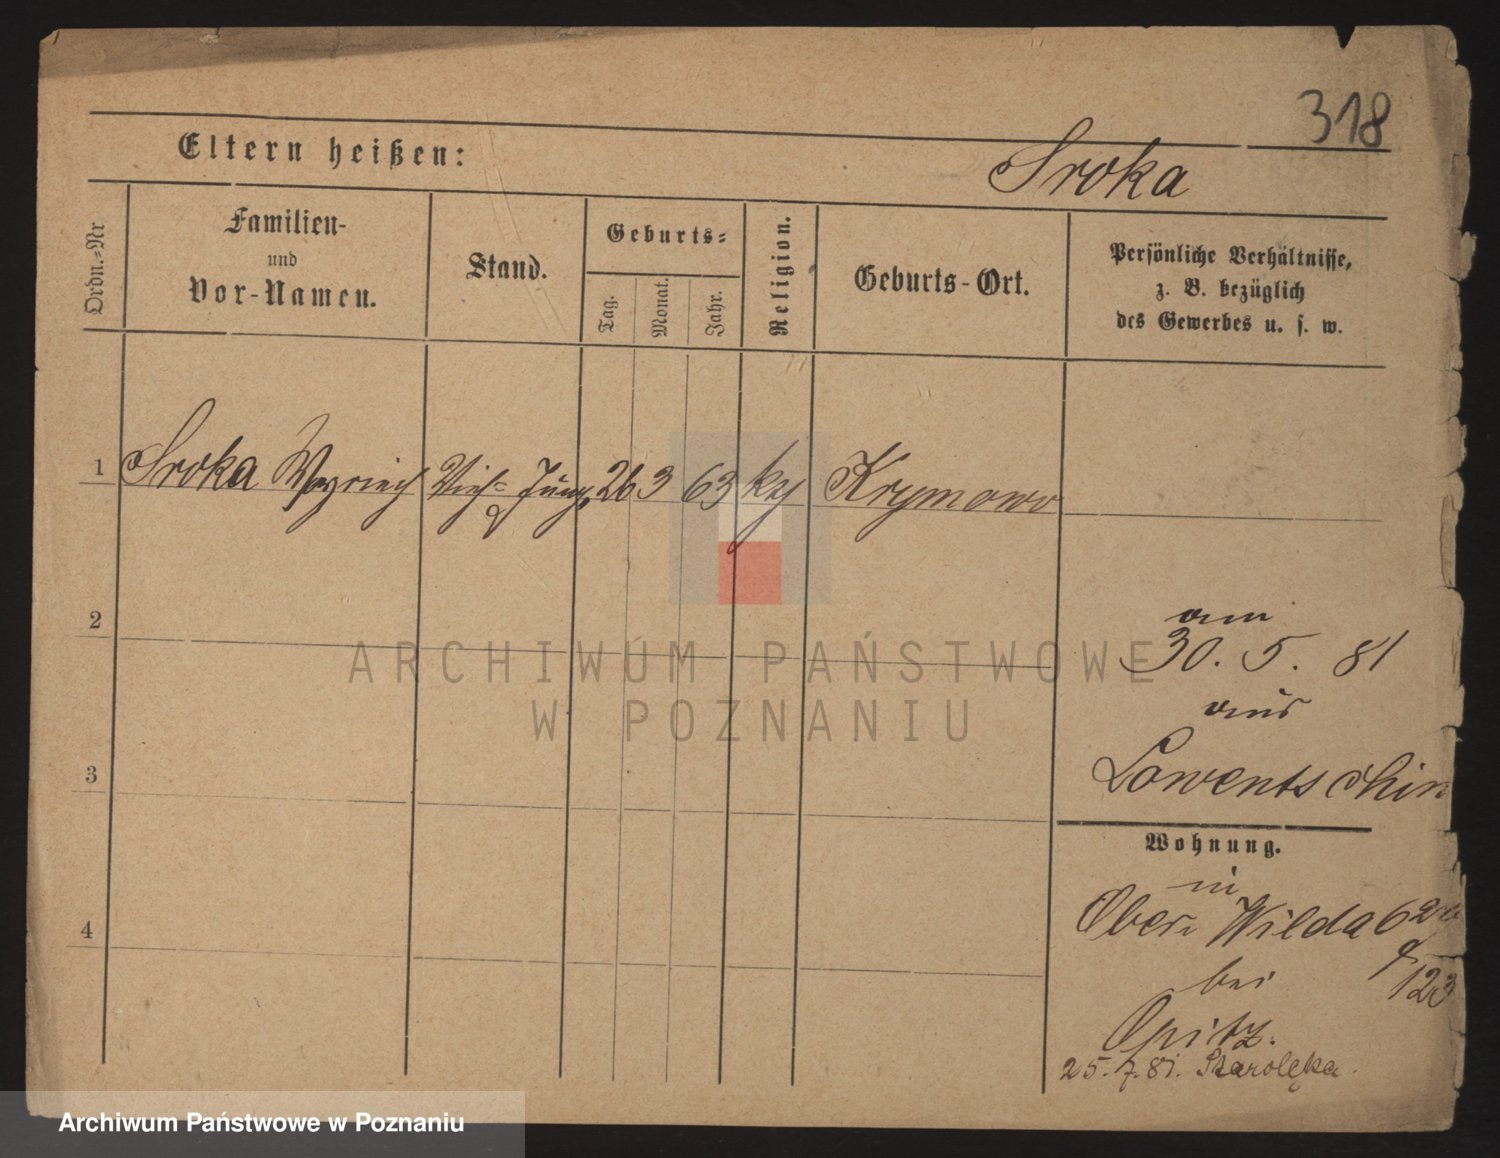 318
Eltern heißen:
Sroka
Ordn.-Nr
Familien-
und
Vor-Namen.
Stand.
Geburts-
Tag.
Monat.
Jahr.
Religion.
Geburts-Ort.
Persönliche Verhältnisse,
z. B. bezüglich
des Gewerbes u. s. w.
1 Sroka Vieh- Jung 26 3 63 Krymowo
2
am
30. 5. 81
aus
3
Lowentschin
Wohnung.
in
4
Ober Wilda 62
123
bei
Opitz.
25. 7. 81. Starolęka.
ARCHIWUM PAŃSTWOWE
W POZNANIU
Archiwum Państwowe w Poznaniu